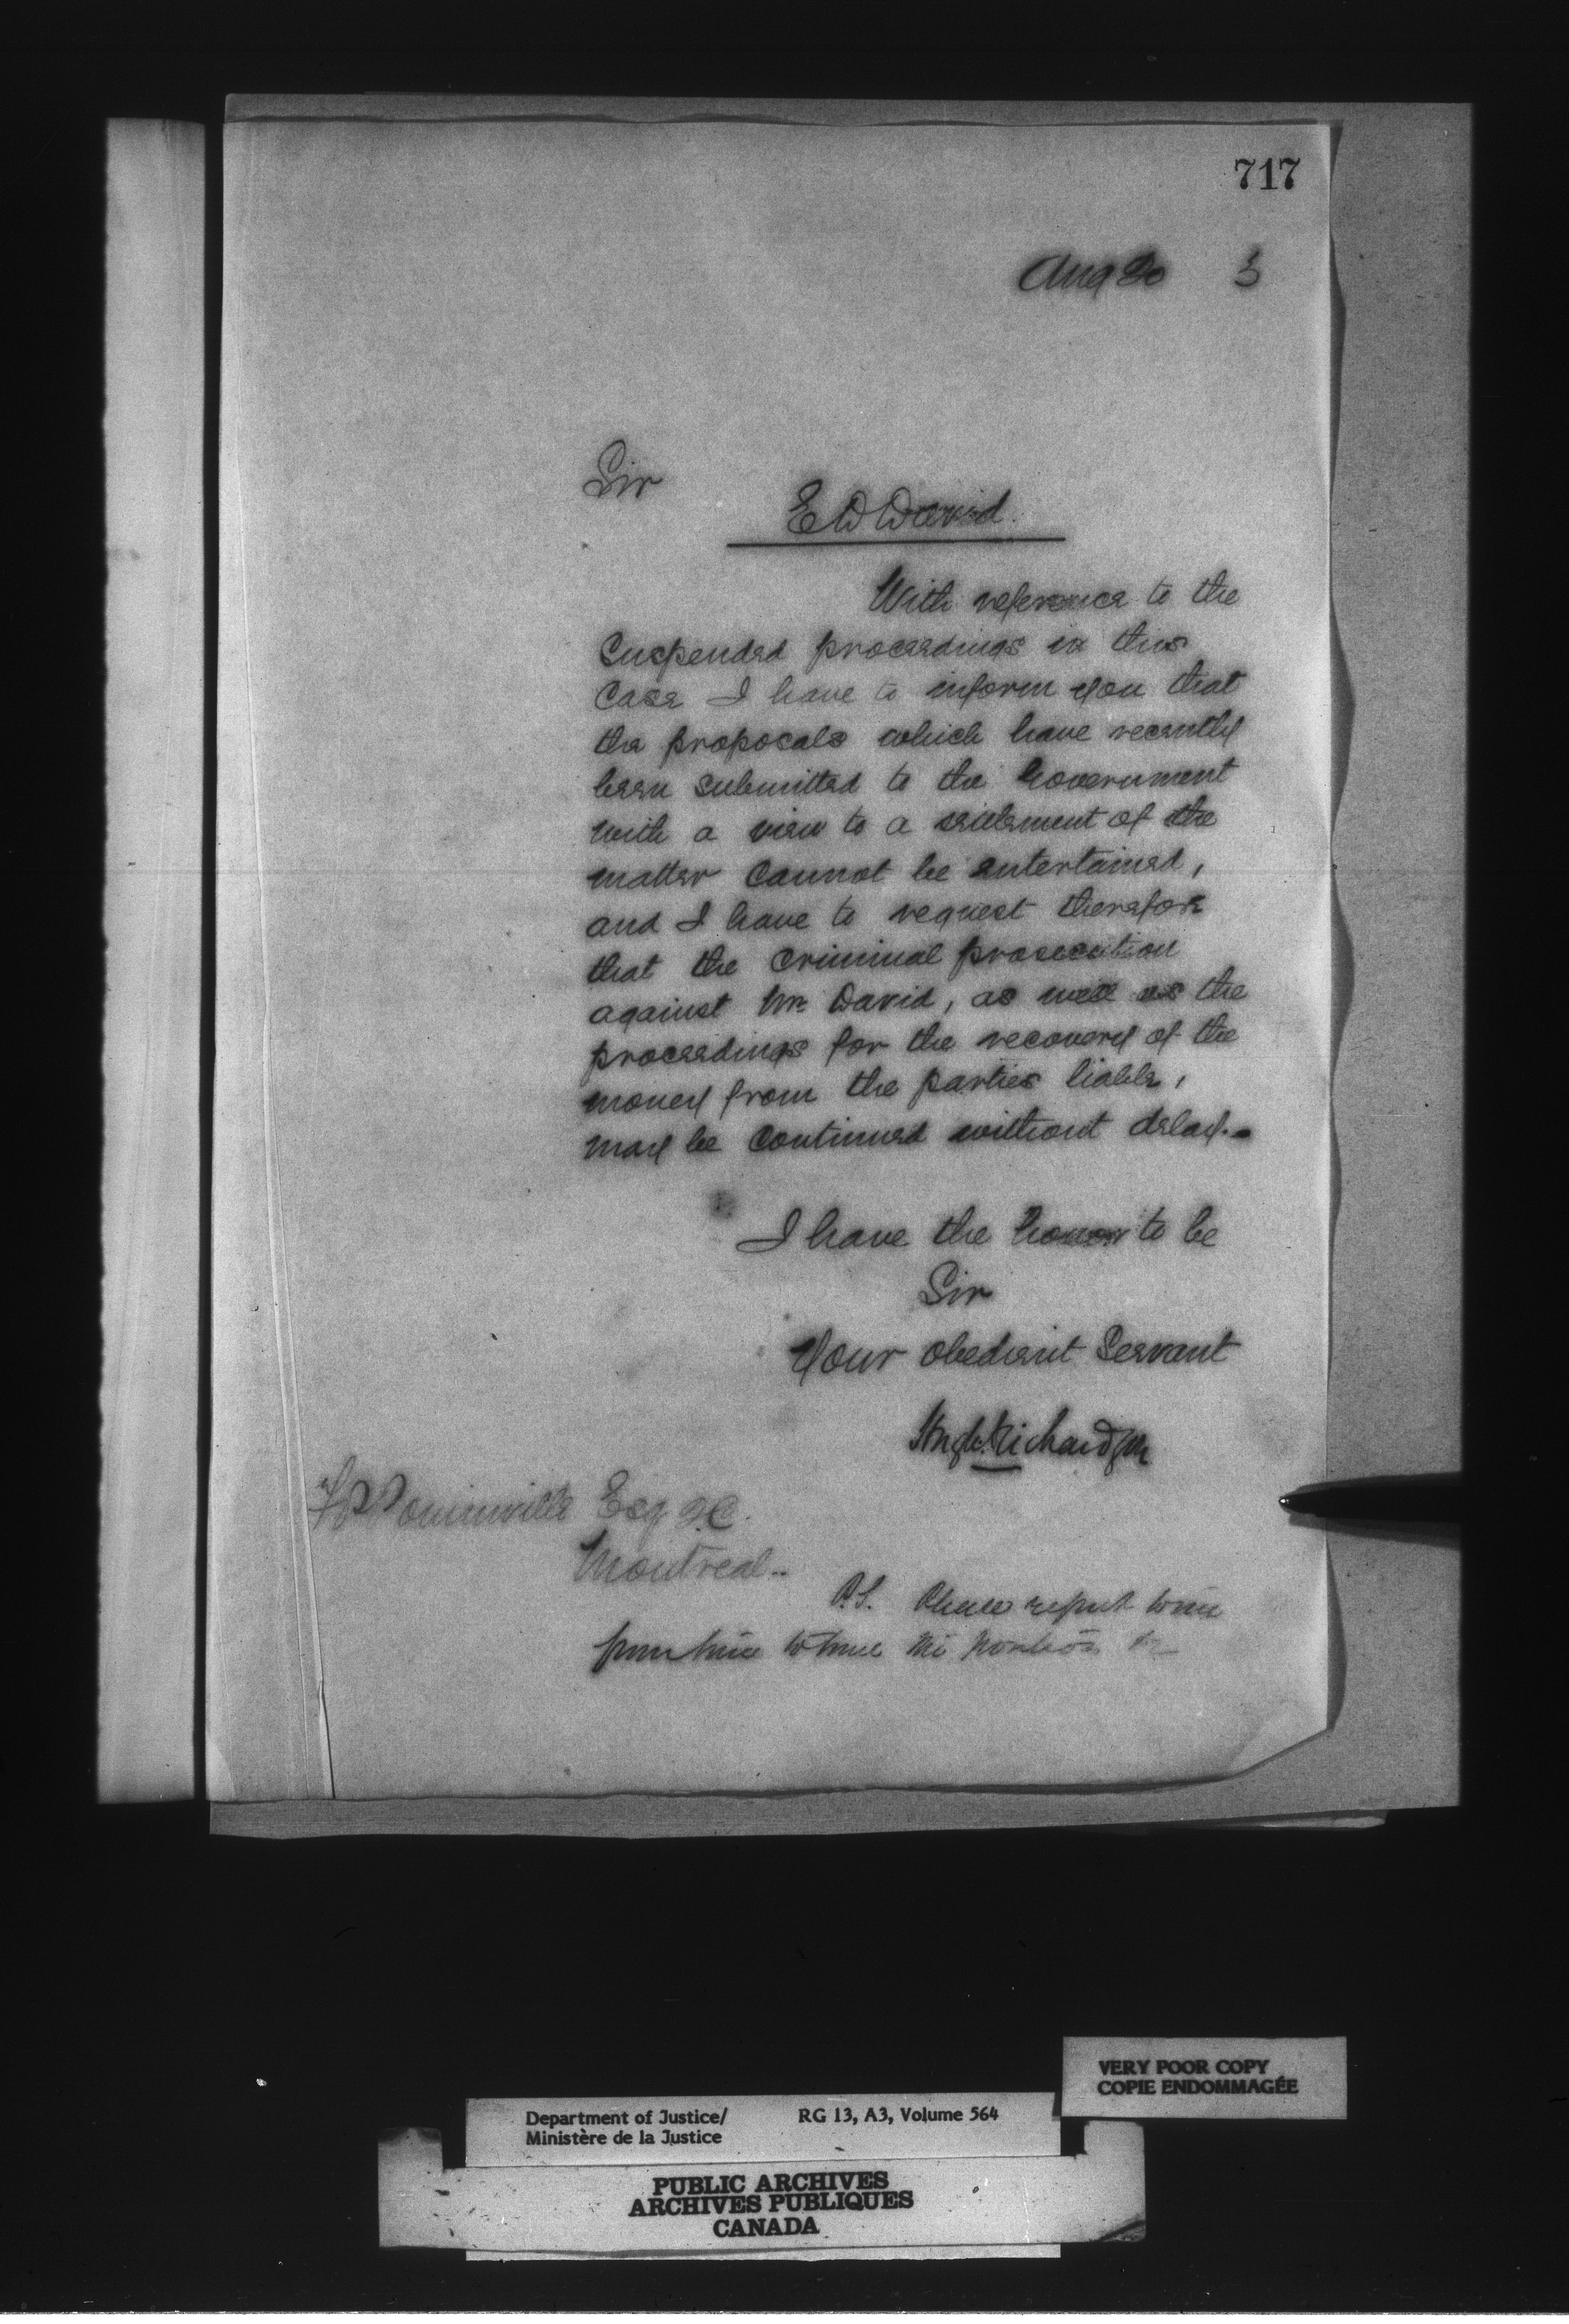 717
Aug 20 3
Sir
E W David.
With reference to the
Suspended proceedings in this
Case I have to inform you that
the proposals which have recently
been submitted to the Government
with a view to a settlement of the
matter Cannot be entertained,
and I have to request therefore
that the Criminal prosecution
against Mr David, as well as the
proceedings for the recovery of the
money from the parties liable,
may be Continued without delay.
I have the honor to be
Sir
Your obedient Servant
Hugh Richardson
Esq Q.C.
Montreal..
P.S. Please report to me
from time to time
VERY POOR COPY
COPIE ENDOMMAGÉE
Department of Justice/ RG 13, A3, Volume 564
Ministère de la Justice
PUBLIC ARCHIVES
ARCHIVES PUBLIQUES
CANADA